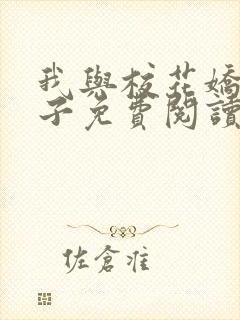 我與校花嬌
子免費閱讀
佐倉淮